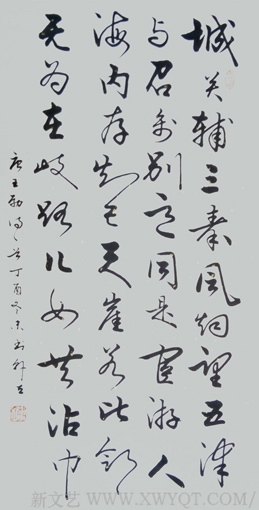 城阙辅三秦风烟望五津
与君离别意同是宦游人
海内存知己天涯若比邻
无为在歧路儿女共沾巾
唐王勃诗丁酉冬
新文艺 WWW.XWYQT.COM/